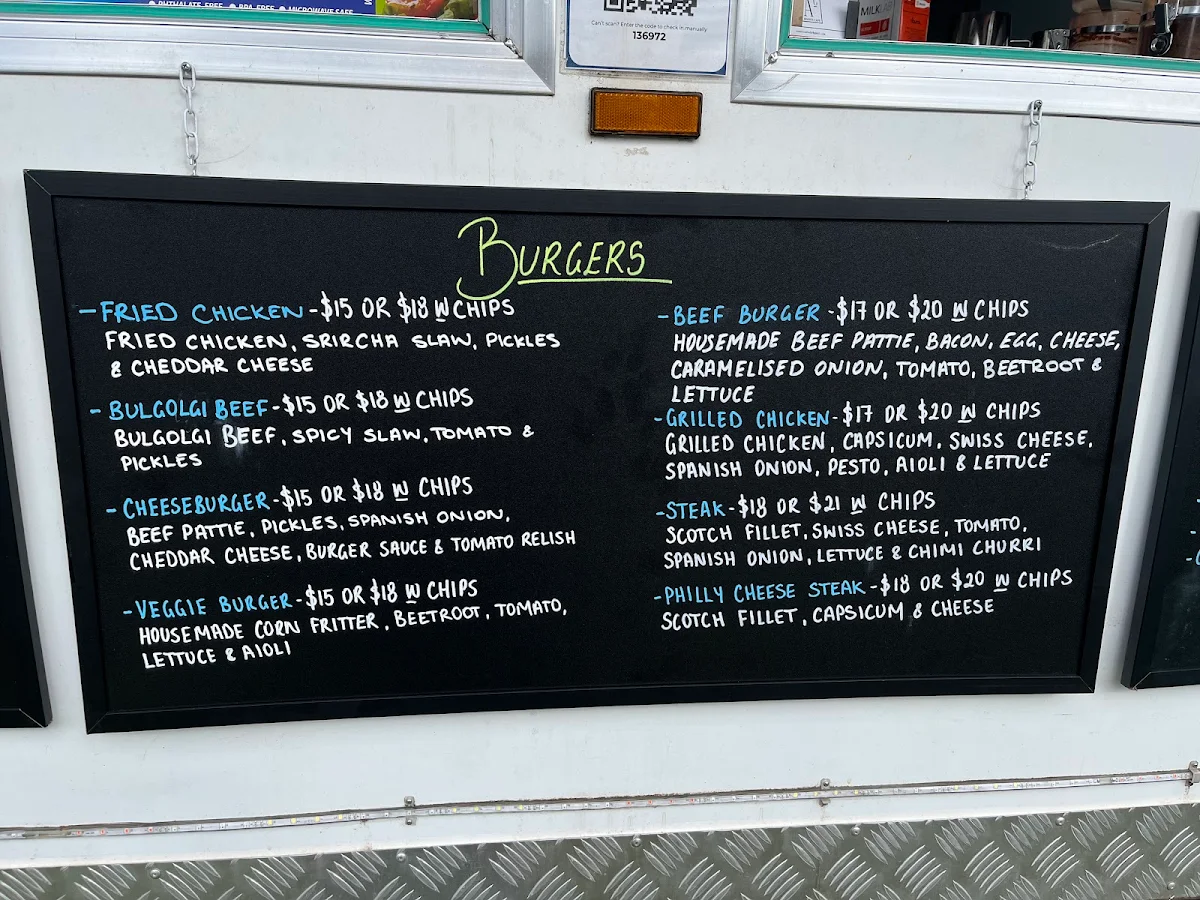 ● PHTHALATE-FREE ● BPA-FREE ● MICROWAVE SAFE
Can't scan? Enter the code to check in manually
136972
MILK
BURGERS
-FRIED CHICKEN-$15 OR $18 W CHIPS
FRIED CHICKEN, SRIRCHA SLAW, PICKLES
& CHEDDAR CHEESE
-BULGOLGI BEEF-$15 OR $18 W CHIPS
BULGOLGI BEEF, SPICY SLAW, TOMATO &
PICKLES
-CHEESEBURGER-$15 OR $18 W CHIPS
BEEF PATTIE, PICKLES, SPANISH ONION,
CHEDDAR CHEESE, BURGER SAUCE & TOMATO RELISH
-VEGGIE BURGER-$15 OR $18 W CHIPS
HOUSEMADE CORN FRITTER, BEETROOT, TOMATO,
LETTUCE & AIOLI
-BEEF BURGER-$17 OR $20 W CHIPS
HOUSEMADE BEEF PATTIE, BACON, EGG, CHEESE,
CARAMELISED ONION, TOMATO, BEETROOT &
LETTUCE
-GRILLED CHICKEN-$17 OR $20 W CHIPS
GRILLED CHICKEN, CAPSICUM, SWISS CHEESE,
SPANISH ONION, PESTO, AIOLI & LETTUCE
-STEAK-$18 OR $21 W CHIPS
SCOTCH FILLET, SWISS CHEESE, TOMATO,
SPANISH ONION, LETTUCE & CHIMI CHURRI
-PHILLY CHEESE STEAK-$18 OR $20 W CHIPS
SCOTCH FILLET, CAPSICUM & CHEESE